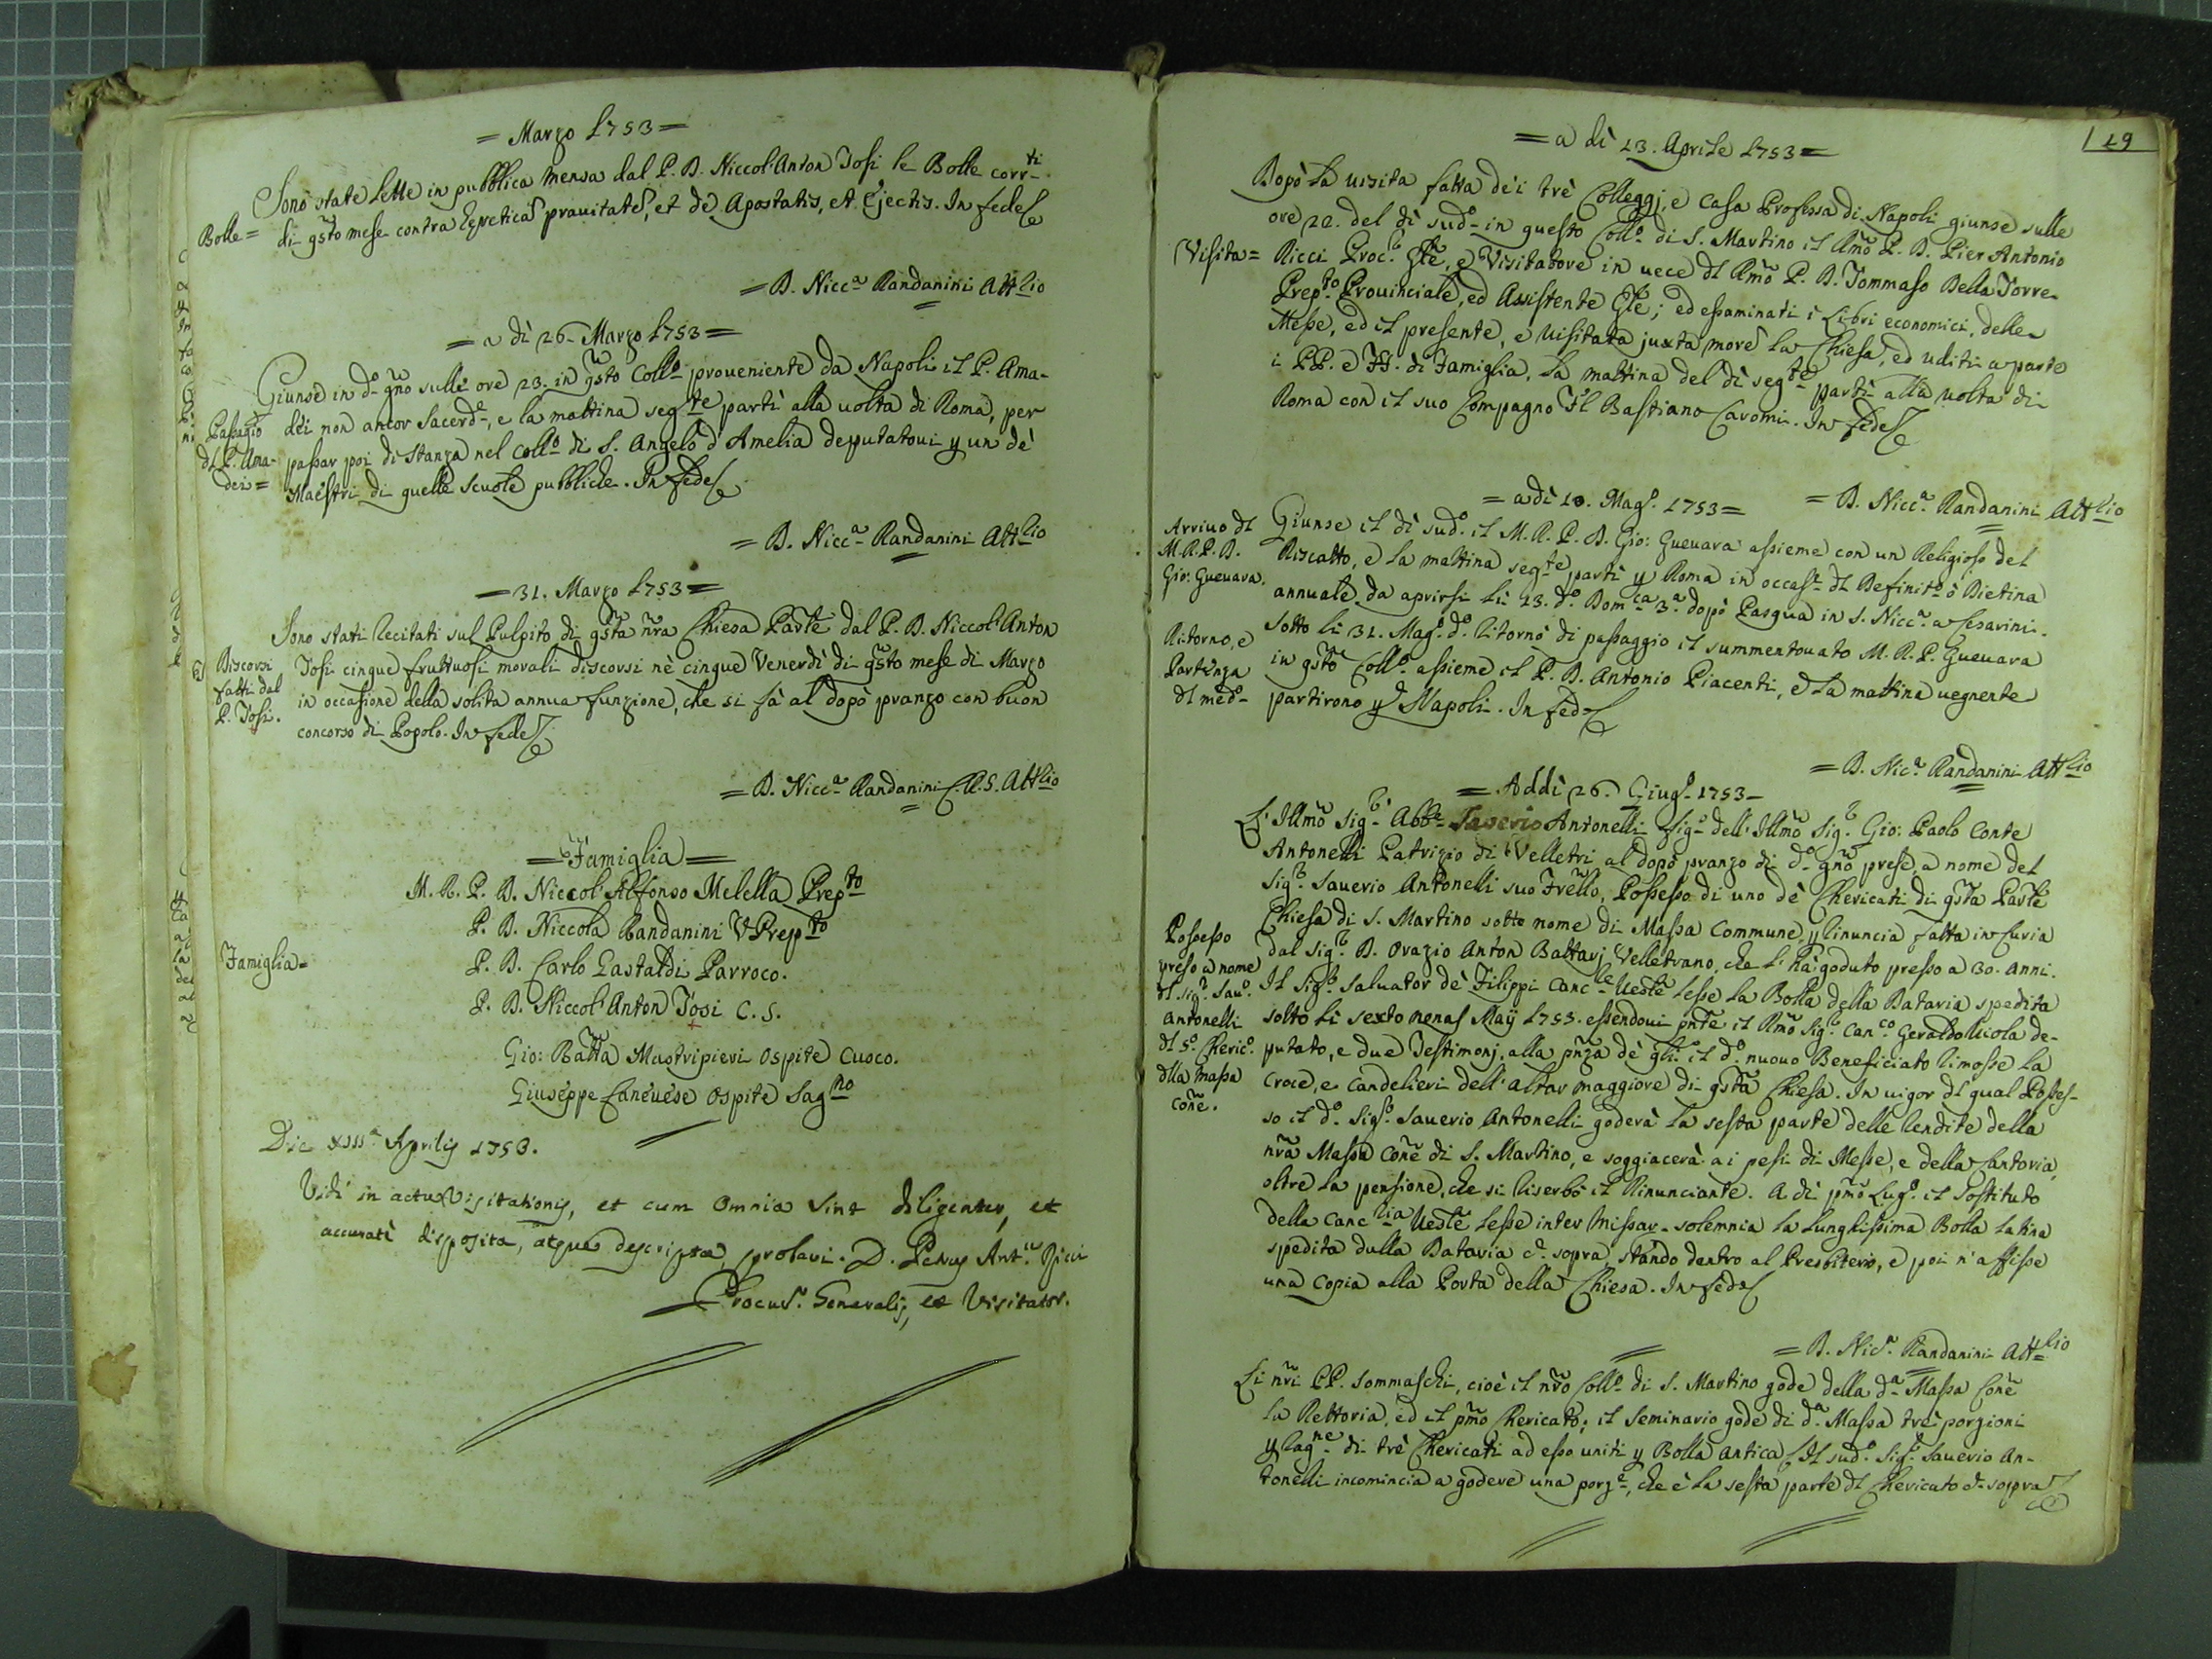 = Marzo 1753 =
Sono state lette in pubblica mensa dal P. D. Niccol' Anton Tosi le Bolle corr.ti
Bolle =
di gsto mese contra hereticã prauitatẽ, et de Apostatis, et Ejectis. In fede
= D. Nicc.a Randanini Att.lio
= a dì 26. Marzo 1753 =
Giunse in d.o gño sulle ore 23. in gsto Coll.o proueniente da Napoli il P. Ama-
Passagio
dl P. Ama-
dei =
dei non ancor Sacerd.e, e la mattina seg.te partì alla uolta di Roma, per
passar poi di stanza nel Coll.o di S. Angelo d'Amelia deputatoui p un de'
Maestri di quelle scuole pubbliche. In fede
= D. Nicc.a Randanini Att.lio
= 31. Marzo 1753 =
Sono stati recitati sul Pulpito di gsta nra Chiesa Parle dal P. D. Niccol' Anton
Discorsi
fatti dal
P. Tosi.
Tosi cinque fruttuosi morali discorsi nè cinque Venerdì di gsto mese di Marzo
in occasione della solita annua funzione, che si fà al dopo pranzo con buon
concorso di Popolo. In fede
= D. Nicc.a Randanini C.R.S. Att.lio
= Famiglia =
M. R. P. D. Niccol' Alfonso Melella Prep.to
P. D. Niccola Randanini V Prep.to
Famiglia =
P. D. Carlo Gastaldi Parroco.
P. D. Niccol' Anton Tosi C. S.
Gio: Batta Mastripieri ospite Cuoco.
Giuseppe Caneuese ospite Sag.no
Die XIII.a Aprilis 1753.
Vidi in actu Visitationis, et cum omnia sint diligenter, et
accuratè disposita, atque descripta, probavi. D. Petrus Ant.us Ricci
Procur. Generalis, et Visitator.
19
= a dì 13. Aprile 1753 =
Dopò la uisita fatta de'i trè Colleggj, e Casa Professa di Napoli giunse sulle
ore 22. del dì sud.o in questo Coll.o di S. Martino il Rmo P. D. Pier Antonio
Visita =
Ricci Proc. Gñle, e Visitatore in uece dl Rmo P. D. Tommaso Della Torre
Prep.to Prouinciale, ed Assistente Gñle; ed essaminati i Libri economici, delle
Messe, ed il presente, e uisitata juxta morẽ la Chiesa, ed uditi a parte
i PP. e FF. di Famiglia, la mattina del dì seg.te partì alla uolta di
Roma con il suo Compagno Fl Bastiano Caromi. In fede
= D. Nicc.a Randanini Att.lio
= a dì 10. Mag.o 1753 =
Arriuo dl
M.R.P.D.
Gio: Gueuara.
Giunse il dì sud.o il M. R. P. D. Gio: Gueuara assieme con un Religioso del
Riscatto, e la mattina seg.te partì p Roma in occas.e dl Definit.o ò Dietina
annuale, da aprirsi li 13. d.o Dom.ca 3.a dopò Pasqua in S. Nicc.a a Cesarini.
Ritorno, e
Partenza
dl med.o
Sotto li 31. Mag.o d.o ritornò di passaggio il summentouato M. R. P. Gueuara
in gsto Coll.o assieme il P. D. Antonio Piacenti, e la mattina uegnente
partirono p Napoli. In fede
= D. Nic.a Randanini Att.lio
= Addì 26. Giug.o 1753 =
L'Illmo Sig.r Abb.e Saverio Antonelli fig.o dell'Illmo Sig.r Gio: Paolo Conte
Antonelli Patrizio di Velletri al dopò pranzo di d.o gño prese, a nome del
Sig.r Sauerio Antonelli suo Frello, Possesso di uno de' Chericati di gsta Parle
Possesso
preso a nome
dl Sig.r Sau.o
Antonelli
dl 5.o Cheric.o
dlla Massa
Coñe.
Chiesa di S. Martino sotto nome di Massa Commune, p rinuncia fatta in Curia
dal Sig.r D. Orazio Anton Battarj Velletrano, che l'hà goduto presso a 30. anni.
Il Sig.r Saluator de' Filippi Canc.le Uesle lesse la Bolla della Dataria spedita
sotto li sexto nonas Maij 1753. essendoui pnte il Rmo Sig.r Can.co Geraldo Micola de-
putato, e due Testimonj, alla pnza de' gli il d.o nuouo Beneficiato rimosse la
Croce, e Candelieri dell'altar maggiore di gsta Chiesa. In uigor dl qual Posses-
so il d.o Sig.r Sauerio Antonelli goderà la sesta parte delle rendite della
nra Massa Coñe di S. Martino, e soggiacerà ai pesi di Messe, e della Cantoria,
oltre la pensione, che si riserbò il Rinunciante. A dì pmo Lug.o il Sostituto
della Canc.lia Uesle lesse inter Missar. solemnia la lunghissima Bolla latina
spedita dalla Dataria c.e sopra, stando dentro al Presbiterio, e poi n'affisse
una copia alla Porta della Chiesa. In fede
= D. Nic.a Randanini Att.lio
Li nri PP. Sommaschi, cioè il nro Coll.o di S. Martino gode della d.a Massa Coñe
la Rettoria, ed il pmo Chericato; il Seminario gode di d.a Massa trè porzioni
p rag.ne di trè Chericati ad esso uniti p Bolla antica, Il sud.o Sig.r Sauerio An-
tonelli incomincia a godere una porz.e, che è la sesta parte dl Chericato c.e sopra